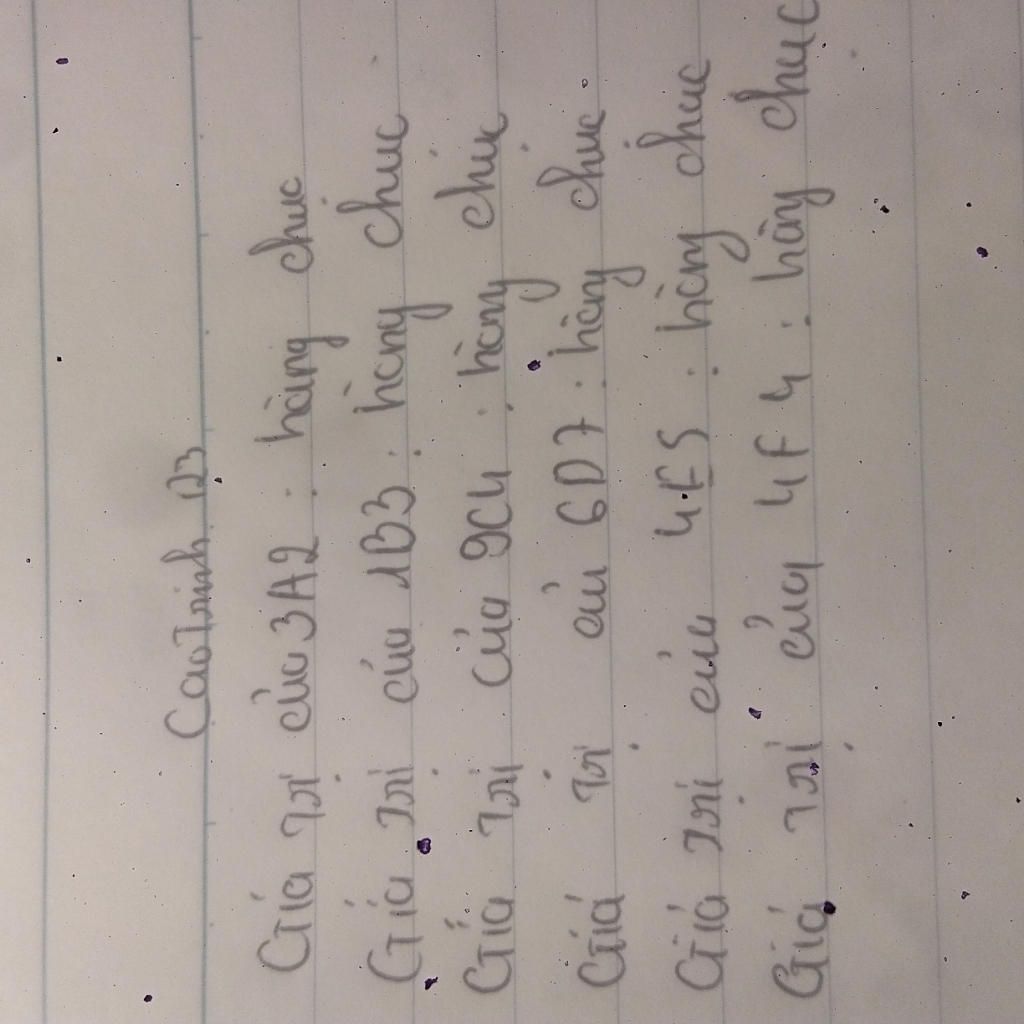 Cao Trinh 123
Giá trị của 3A2 : hàng chục
Giá trị của 1B3 : hàng chục
Giá trị của 9C4 : hàng chục
Giá trị củ 6D7 : hàng chục
Giá trị của 4E5 : hàng chục
Giá trị của 4F4 : hàng chục